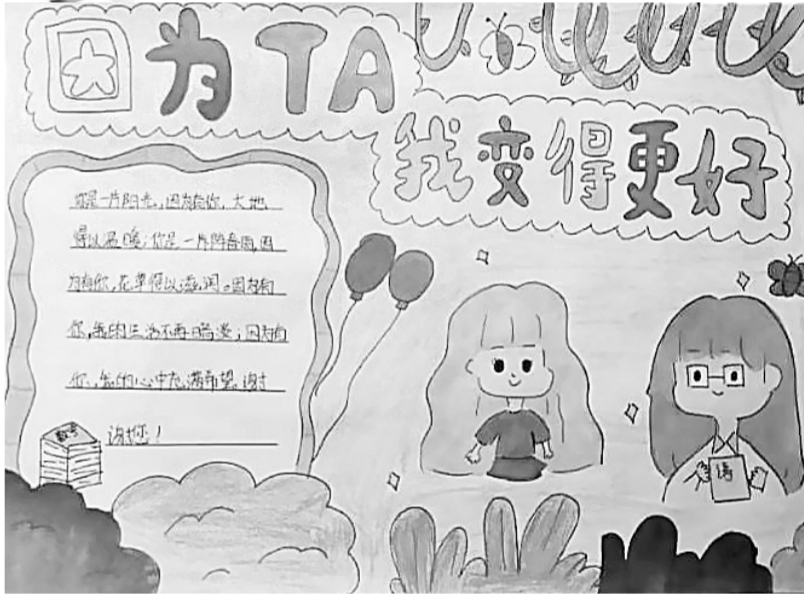 因为TA
我变得更好
你是一片阳光,因为有你,大地
得以温暖;你是一片阵春雨,因
为有你,花草得以滋润。因为有
你,我的生活不再暗淡;因为有
你,我的心中充满希望。谢
谢您!
数学
语